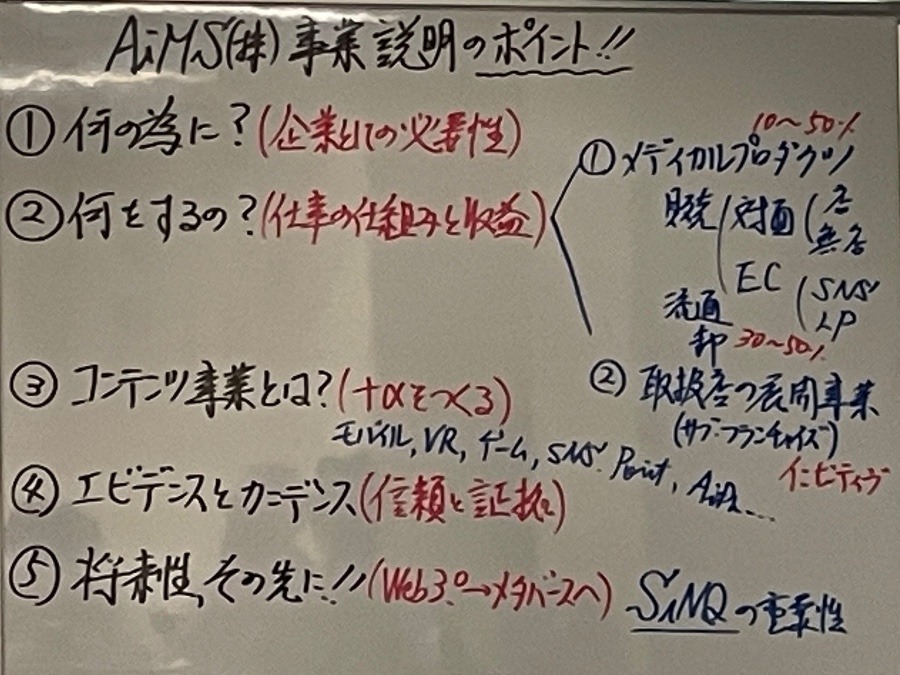 AiMS(株)事業説明のポイント!!
① 何の為に?(企業としての必要性)
② 何をするの?(仕事の仕組みと収益)
① メディカルプロダクツ 10〜50%
販売 対面 店 無店
EC SNS LP
流通
卸 30〜50%
② 取扱店の展開事業
(サブ・フランチャイズ)
インセンティヴ
③ コンテンツ事業とは?(+αをつくる)
モバイル, VR, ゲーム, SNS. Point,
④ エビデンスとカニデンス(信頼と証拠)
⑤ 将来性, その先に!!(Web3.0→メタバースへ)
SiNQの重要性